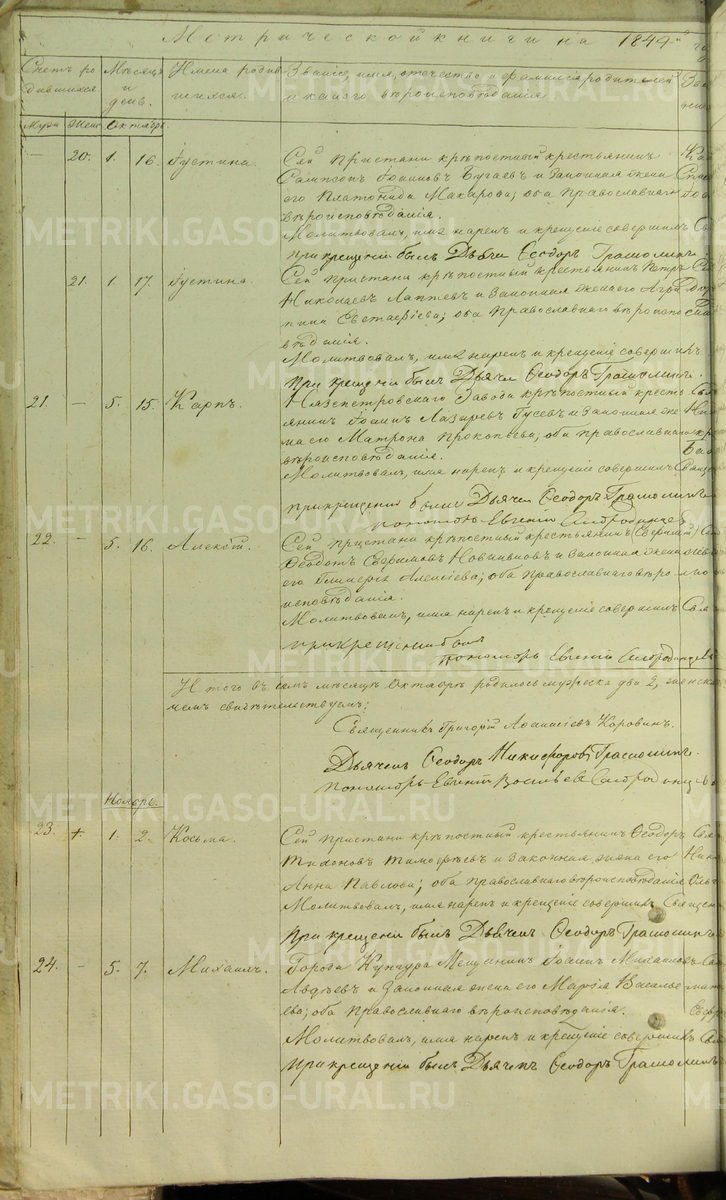 Метрической книги на 1844й
Счетъ родившихся.
Мужс Женс
Мѣсяцъ и день.
Октябрь.
Имена родившихся.
Званіе, имя, отечество и фамилія родителей
и какого вѣроисповѣданія
— 20. 1. 16. Іустина.
Сей пристани крѣпостный крестьянинъ
Сампсон Іоанновъ Бугаев и законная жена
его Платонида Макарова; оба православнаго
вѣроисповѣданія.
Молитвовалъ, имя нарек и крещеніе совершилъ
При крещеніи былъ Дьячекъ Ѳеодоръ Грамолинъ.
21. 1. 17. Іустина.
Сей пристани крѣпостный крестьянинъ Петръ
Николаевъ Лаптевъ и законная жена его Агри
пина Евстафіева; оба православнаго вѣроиспо
вѣданія.
Молитвовалъ, имя нарек и крещеніе совершилъ
При крещеніи былъ Дьячекъ Ѳеодоръ Грамолинъ.
21. — 5. 15. Карпъ.
Нязепетровскаго Завода крѣпостный кресть
янинъ Іоанн Лазаревъ Гусевъ и законная же
на его Матрона Прокопьева; оба православнаго
вѣроисповѣданія.
Молитвовалъ, имя нарекъ и крещеніе совершилъ
При крещеніи были Дьячекъ Ѳеодоръ Грамолинъ
пономарь Евгеній
22. — 5. 16. Алексій.
Сей пристани крѣпостный крестьянинъ
Ѳеодотъ и законная жена
его Гликерія Алексіева; оба православнаго вѣро
исповѣданія.
Молитвовалъ, имя нарекъ и крещеніе совершилъ
При крещеніи былъ
пономарь Евгеній
Итого въ семъ мѣсяцѣ Октябрѣ родилось мужеска два 2, женска
чемъ свидѣтельствуемъ;
Священникъ Григорій Аѳанасіевъ Коровинъ.
Дьячекъ Ѳеодоръ Никифоровъ Грамолинъ.
Пономарь Евгеній Васильевъ
Ноябрь.
23. + 1. 2. Косьма.
Сей пристани крѣпостный крестьянинъ Ѳеодоръ
Тихоновъ Тимоѳеевъ и законная жена его
Анна Павлова; оба православнаго вѣроисповѣданія
Молитвовалъ, имя нарекъ и крещеніе совершилъ
При крещеніи былъ Дьячекъ Ѳеодоръ Грамолинъ
24. — 5. 7. Михаилъ.
Города Кунгура Мещанинъ Іоаннъ Михаиловъ
Авдѣевъ и законная жена его Марія Василье
ва; оба православнаго вѣроисповѣданія.
Молитвовалъ, имя нарекъ и крещеніе совершилъ
При крещеніи былъ Дьячекъ Ѳеодоръ Грамолинъ
METRIKI.GASO-URAL.RU